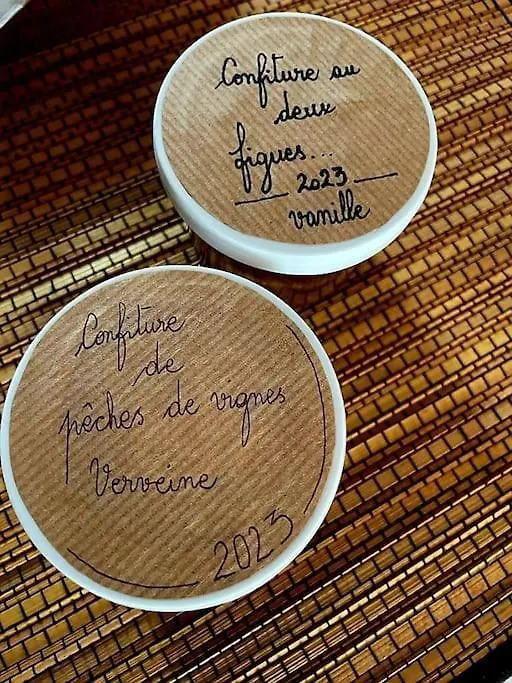 Confiture au
deux
figues...
2023
vanille
Confiture
de
pêches de vignes
Verveine
2023